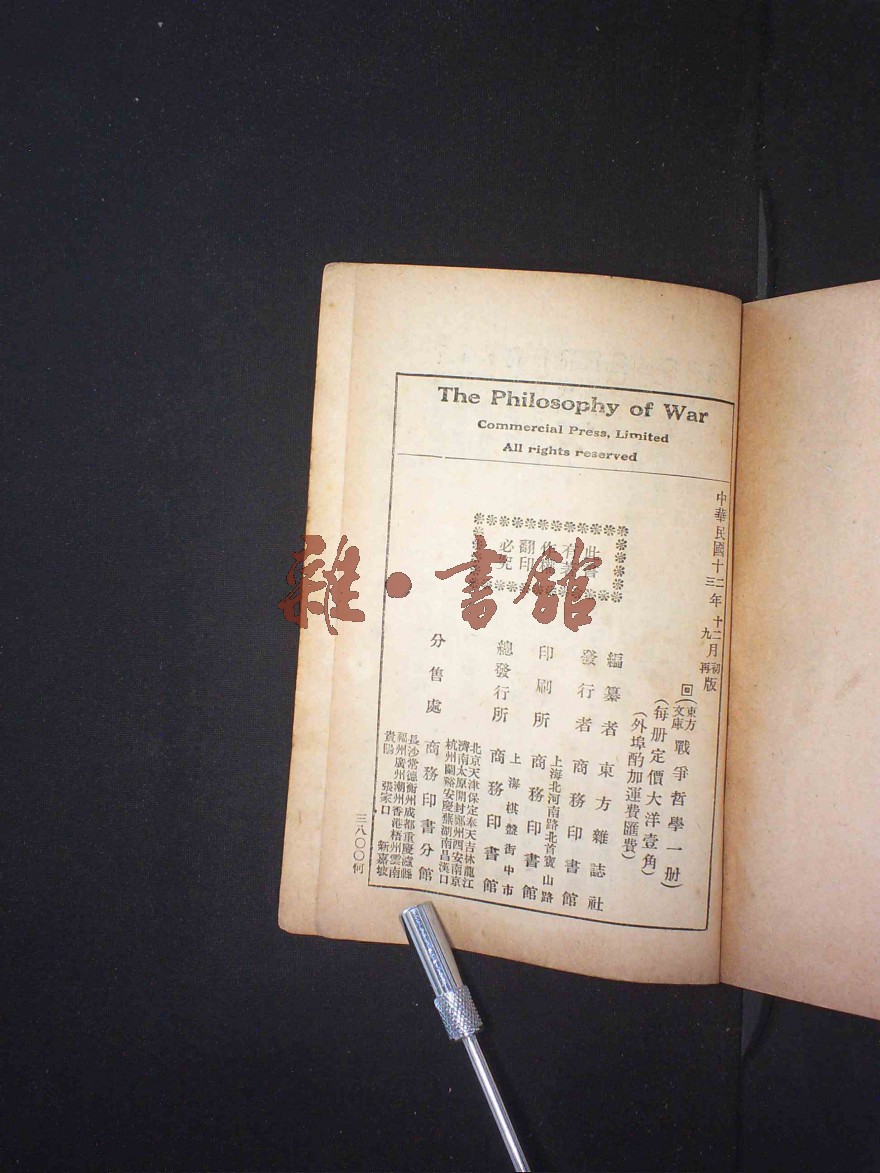 The Philosophy of War
Commercial Press, Limited
All rights reserved
中華民國十二年十二月初版
三 九 再
回(東方文庫)戰爭哲學一册
(每册定價大洋壹角)
(外埠酌加運費匯費)
編纂者 東方雜誌社
發行者 商務印書館
上海北河南路北首寶山路
印刷所 商務印書館
上海棋盤街中市
總發行所 商務印書館
北京天津保定奉天吉林龍江
濟南太原開封鄭州西安南京
杭州蘭谿安慶蕪湖南昌漢口
分售處 商務印書分館
長沙常德衡州成都重慶瀘縣
福州廣州潮州香港梧州雲南
貴陽 張家口 新嘉坡
此書有著作權翻印必究
三八〇〇何
雜·書館